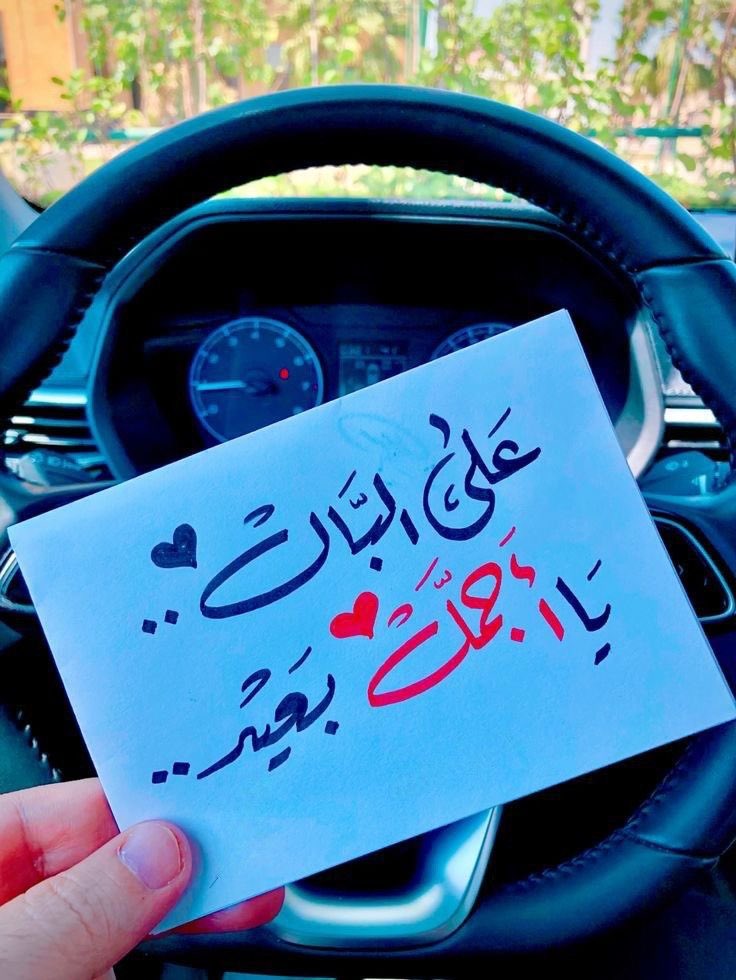 عَلى البَال .. ♥
يَا أجمَل ♥ بَعيْد ..